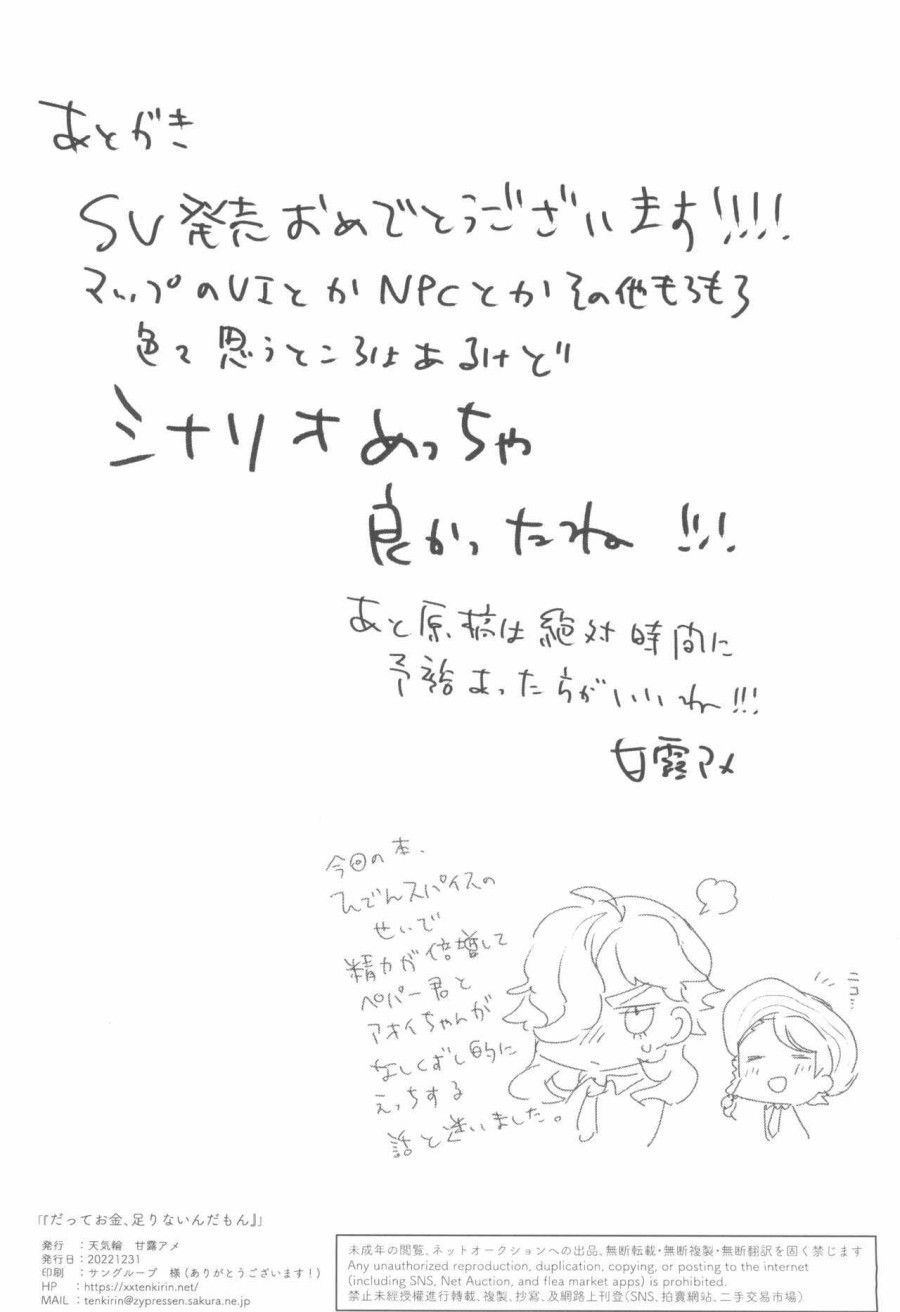 あとがき
SV発売おめでとうございます!!!!
マップのUIとかNPCとかその他もろもろ
色々思うところはあるけど
シナリオめっちゃ
良かったね!!!
あと原稿は絶対時間に
予裕もった方がいいね!!!
甘露アメ
今回の本、
ひでんスパイスの
せいで
精力が倍増して
ペパー君と
アオイちゃんが
なしくずし的に
えっちする
話と迷いました。
ニコッ
『「だってお金、足りないんだもん』」
発行 :天気輪 甘露アメ
発行日:20221231
印刷 :サングループ 様(ありがとうございます!)
HP :https://xxtenkirin.net/
MAIL :tenkirin@zypressen.sakura.ne.jp
未成年の閲覧、ネットオークションへの出品、無断転載・無断複製・無断翻訳を固く禁じます
Any unauthorized reproduction, duplication, copying, or posting to the internet
(including SNS, Net Auction, and flea market apps) is prohibited.
禁止未經授權進行轉載、複製、抄寫、及網路上刊登(SNS、拍賣網站、二手交易市場)